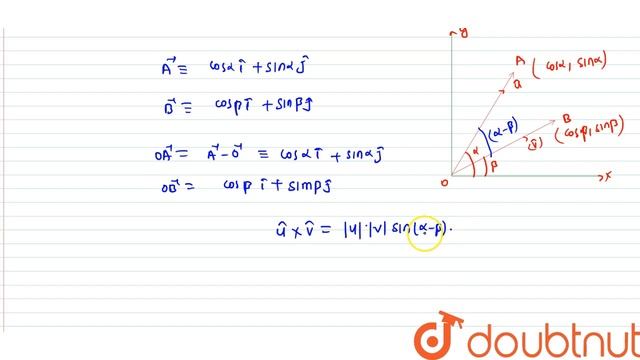 A⃗ ≡ cosα î + sinα ĵ
B⃗ ≡ cosβ î + sinβ ĵ
OA⃗ = A⃗ - O⃗ ≡ cosα î + sinα ĵ
OB⃗ = cosβ î + sinβ ĵ
û × v̂ = |u|·|v| sin(α-β).
y
A (cosα, sinα)
û
(α-β)
B (cosβ, sinβ)
(v̂)
α
β
O
x
doubtnut